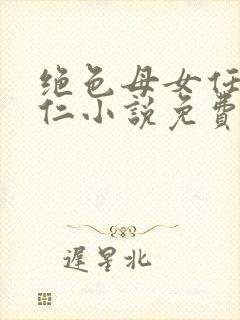 绝色母女任
仁小說免費
遲星北